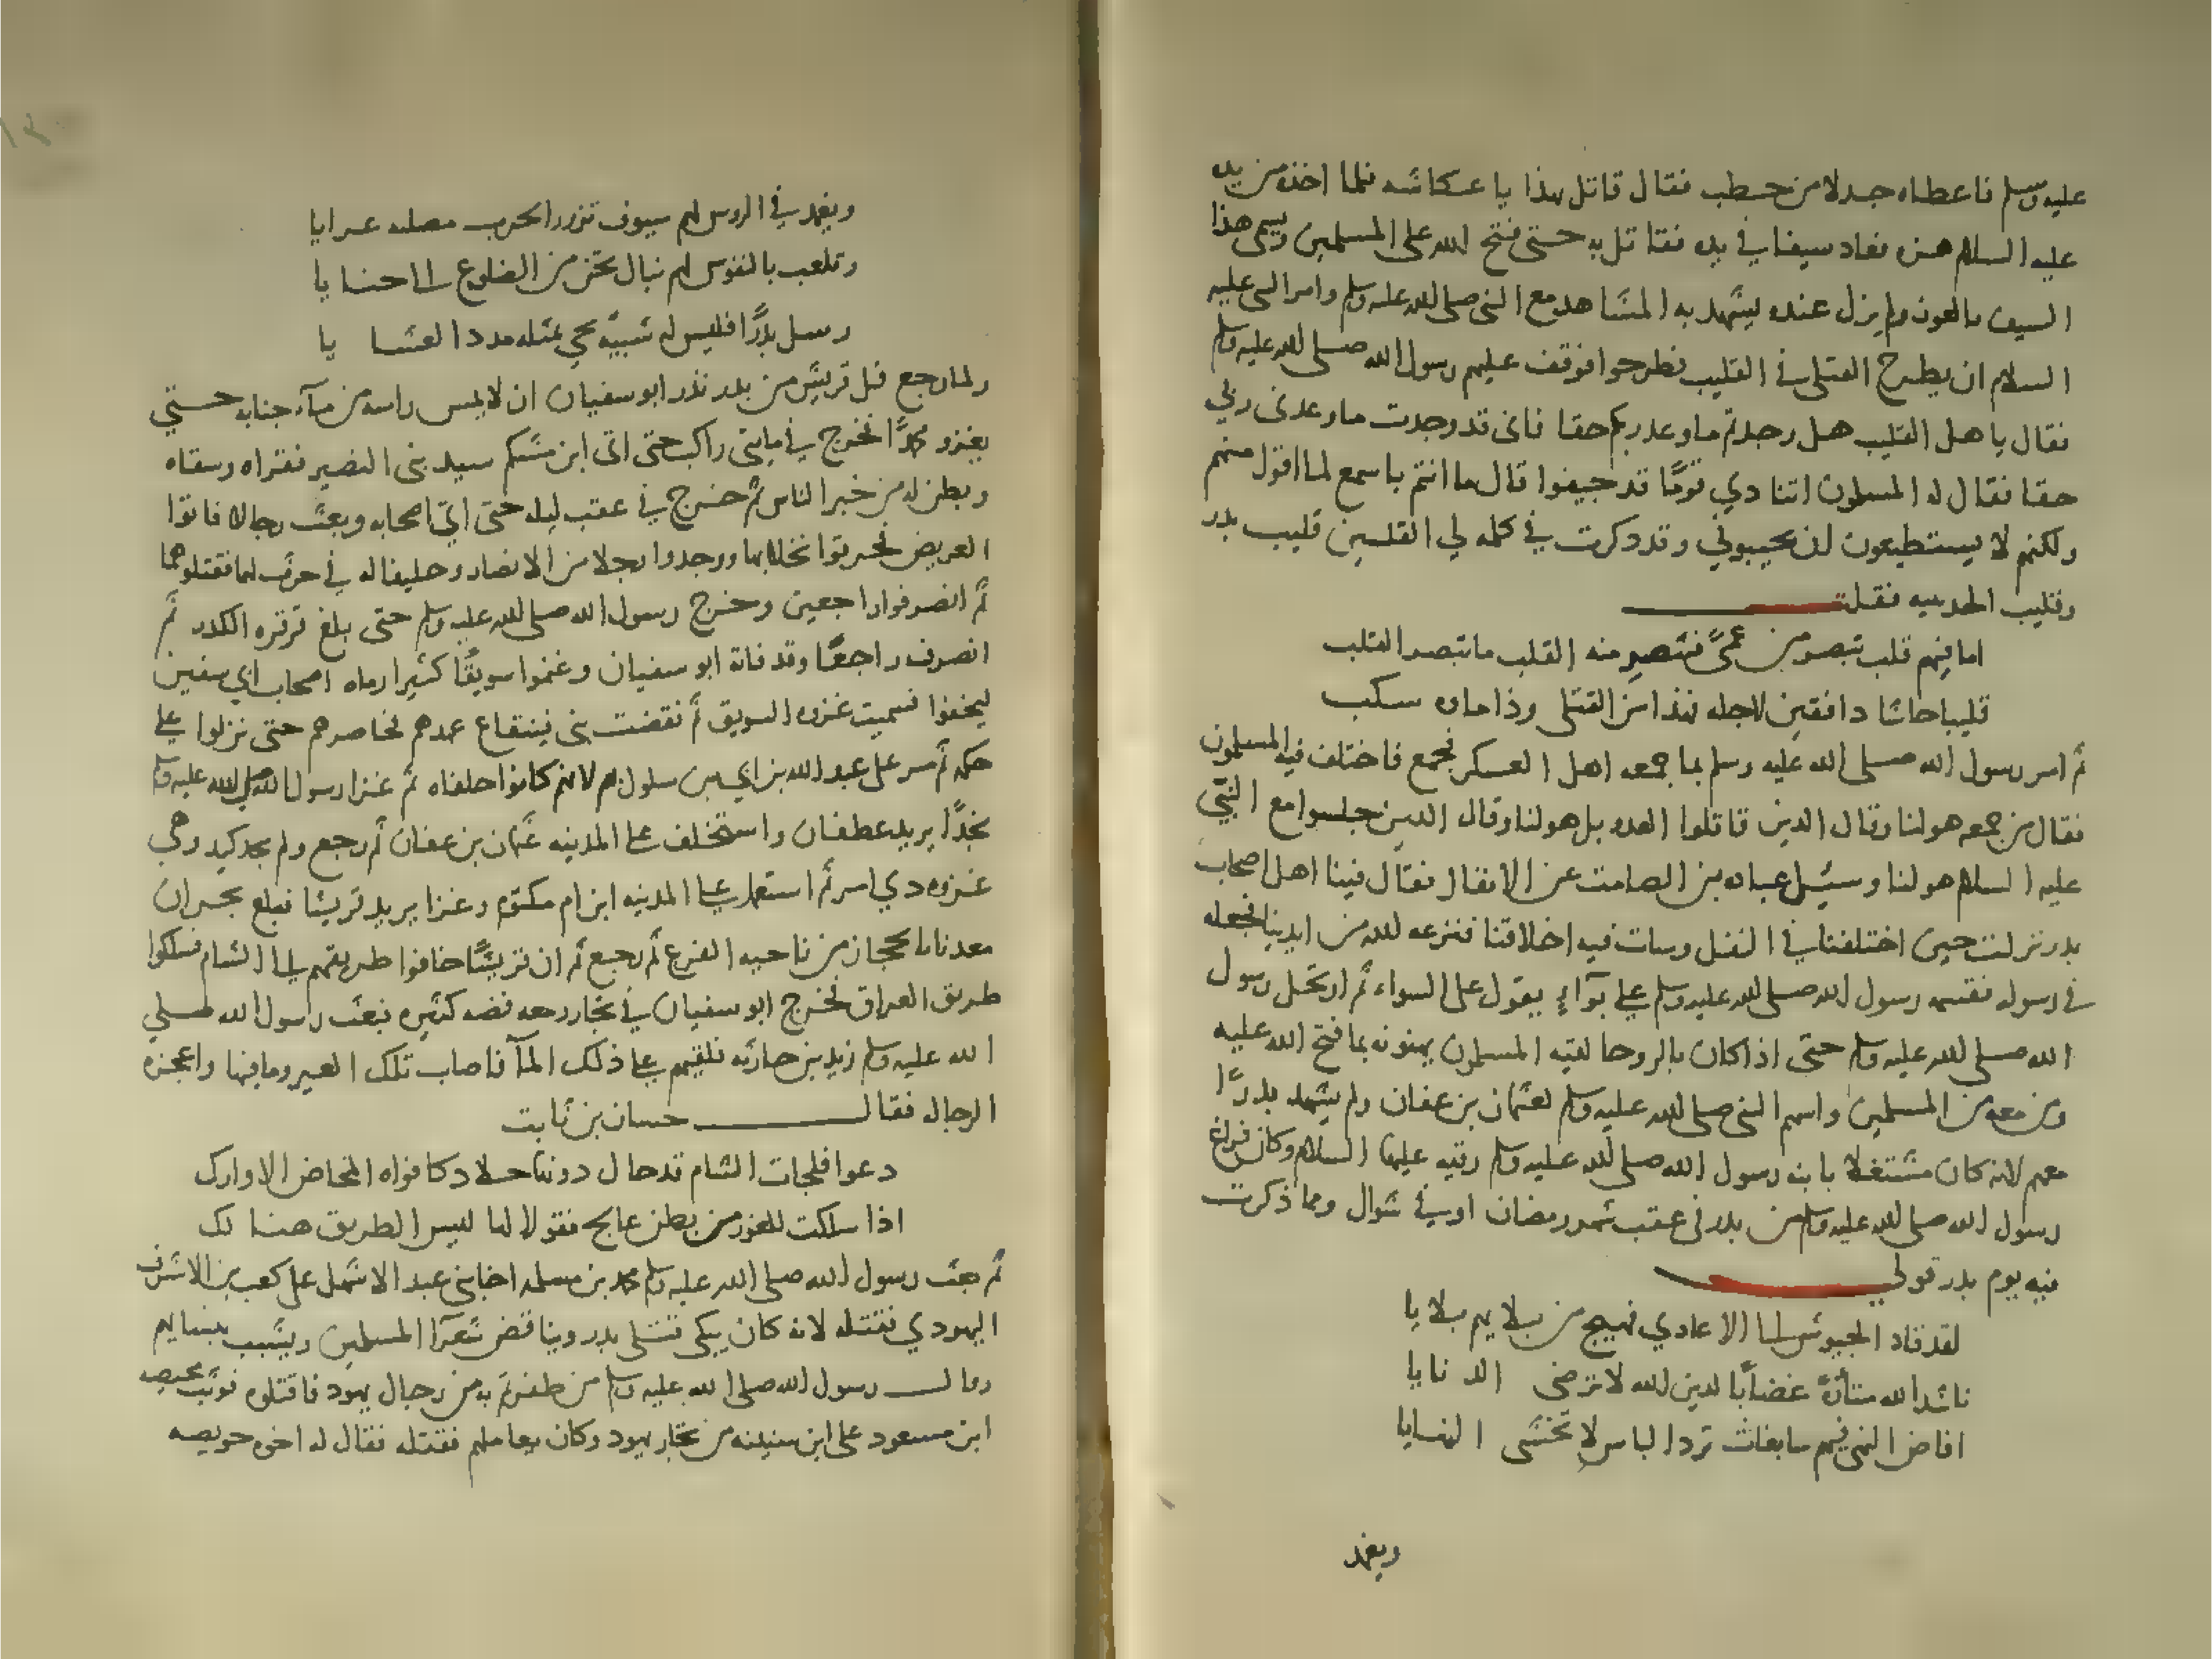 عليه وسلم فاعطاه جدلا من حطب فقال قاتل بهذا يا عكاشه فلما اخذه من يد
عليه السلام هزه فعاد سيفا في يده فقاتل به حتى فتح الله على المسلمين ويسمى هذا
السيف بالعون ولم يزل عنده يشهد به المشاهد مع النبي صلى الله عليه وسلم وامر النبي عليه
السلام ان يطرح القتلى في القليب فطرحوا فوقف عليهم رسول الله صلى الله عليه وسلم
فقال يا هل القليب هل وجدتم ما وعد ربكم حقا فاني قد وجدت ما وعدني ربي
حقا فقال له المسلمون اتنادي قوما قد جيفوا قال ما انتم باسمع لما اقول منهم
ولكنهم لا يستطيعون ان يجيبوني وقد ذكرت في كلمه لي القلبين قليب بدر
وقليب الحديبيه فقلت
اما فيهم قلب تبصر من عمى فتبصر منه القلب ما تبصر القلب
قليبا جاشا دافقين لاجله فهذا من القتلى وذا ماوه سكب
ثم امر رسول الله صلى الله عليه وسلم بما جمعه اهل العسكر فجمع فاختلف فيه المسلمون
فقال من جمعه هو لنا وقال الذين قاتلوا العدو بل هو لنا وقال الذين جلسوا مع النبي
عليه السلام هو لنا وسئل عباده بن الصامت عن الانفال فقال فينا اهل اصحاب
بدر نزلت حين اختلفنا في النفل وسات فيه اخلاقنا فنزعه الله من ايدينا فجعله
في رسوله فقسمه رسول الله صلى الله عليه وسلم على بوآء يقول على السواء ثم ارتحل رسول
الله صلى الله عليه وسلم حتى اذا كان بالروحا لقيه المسلمون يهنونه بما فتح الله عليه
ومن معه من المسلمين واسهم النبي صلى الله عليه وسلم لعثمان بن عفان ولم يشهد بدرًا
معهم لانه كان مشتغلا بابنه رسول الله صلى الله عليه وسلم رقيه عليها السلام وكان فراغ
رسول الله صلى الله عليه وسلم من بدر في عقب شهر رمضان او في شوال ومما ذكرت
فيه يوم بدر قولي
لقد قاد الجيوش الى الاعادي فهيج من بلايهم بلايا
ناشد الله متأنة غضابا لدين الله لا ترضى الدنايا
افاض النهي فيهم سابغات ترد الباس لا تخشى النهايا
ويغمد
ويغمد في الروس لهم سيوف تزور الحرب مصلته عرايا
وتلعب بالنفوس لهم نبال تحن من الضلوع الى احنايا
وسل بدرًا فليس له شبيه يحي بمثله مدد العشايا
ولما رجع فل قريش من بدر نذر ابو سفيان ان لا يمس راسه من مآء جنابه حتي
يغزو محمدًا فخرج في مايتي راكب حتى اتى ابن مشكم سيد بني النضير فقراه وسقاه
وبطن له من خبر الناس ثم خرج في عقب ليله حتى اتي اصحابه وبعث رجالا فاتوا
العريض فحرقوا نخلا بها ووجدوا رجلا من الانصار وحليفا له في حرث لهما فقتلوهما
ثم انصرفوا راجعين وخرج رسول الله صلى الله عليه وسلم حتى بلغ قرقره الكدر ثم
انصرف راجعًا وقد فاته ابو سفيان وغنموا سويقًا كثيرا رماه اصحاب ابي سفين
ليخفوا فسميت غزوه السويق ثم نقضت بني قينقاع عهدهم فحاصرهم حتى نزلوا على
حكمه ثم من على عبد الله بن ابي بن سلول بهم لانهم كانوا حلفاه ثم غزا رسول الله صلى الله عليه وسلم
نجدًا يريد غطفان واستخلف على المدينه عثمان بن عفان ثم رجع ولم يجد كيد وهي
غزوه ذي امر ثم استعمل على المدينه ابن ام مكتوم وغزا يريد قريشا فبلغ بحران
معدنا بالحجاز من ناحيه الفرع ثم رجع ثم ان قريشًا خافوا طريقهم الى الشام فسلكوا
طريق العراق فخرج ابو سفيان في تجار ومعه فضه كثيره فبعث رسول الله صلي
الله عليه وسلم زيد بن حارثه فلقيهم على ذلك المآ فاصاب تلك العير وما فيها واعجزه
الرجال فقال حسان بن ثابت
دعوا فلجات الشام قد حال دونها جلاد كافواه المخاض الاوارك
اذا سلكت للغور من بطن عالج فقولا لها ليس الطريق هنالك
ثم بعث رسول الله صلى الله عليه وسلم محمد بن مسلمه اخا بني عبد الاشهل على كعب بن الاشرف
اليهودي فقتله لانه كان يبكي قتلى بدر ويناقض شعرآ المسلمين ويشبب بنسايهم
وقال رسول الله صلى الله عليه وسلم من ظفرتم به من رجال يهود فاقتلوه فوثب محيصه
ابن مسعود على ابن سنينه من تجار يهود وكان يعاملهم فقتله فقال له اخوه حويصه